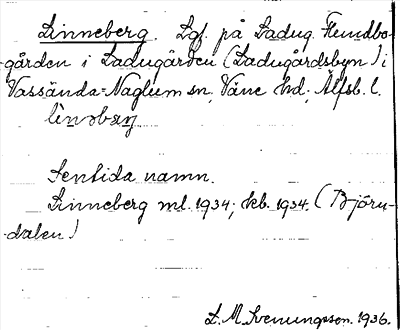 Linneberg. Lgf. på Ladug. Flundbo-
gården i Ladugården (Ladugårdsbyn) i
Vassända-Naglum sn, Väne hd, Älfsb. l.
Sentida namn.
Linneberg ml. 1934; kb. 1934. (Björn-
dalen)
L. M. Svenungsson. 1936.